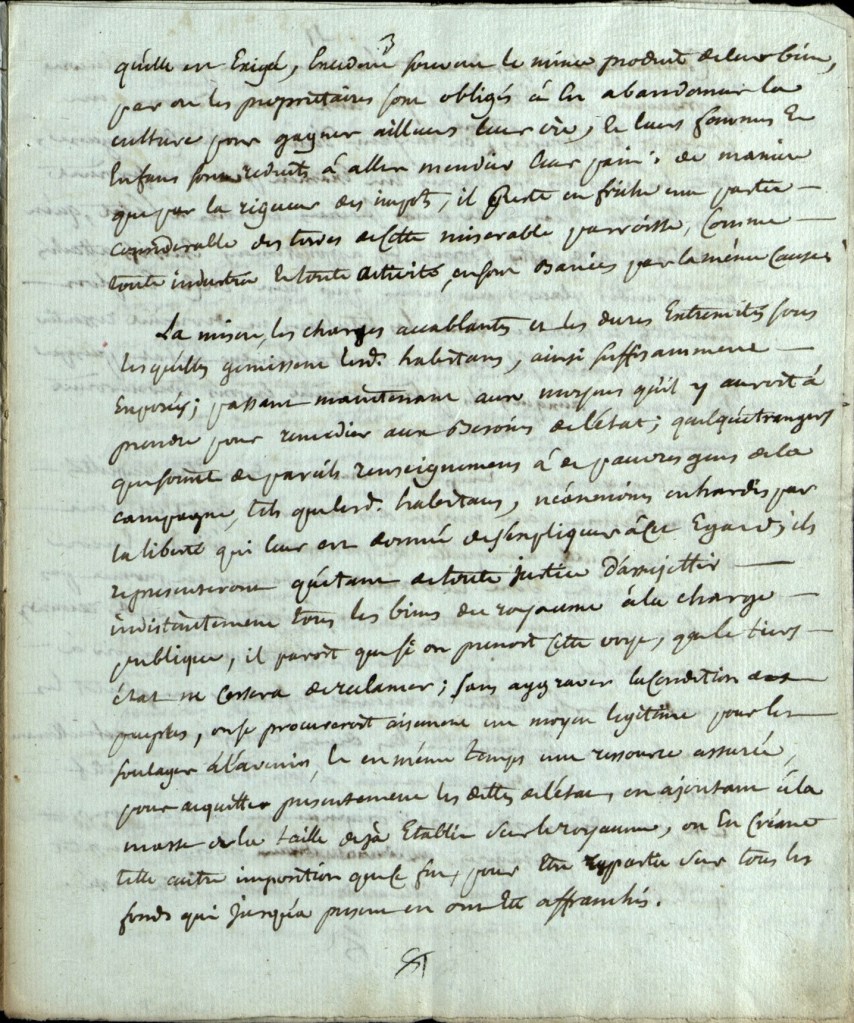 3
qu'elle en Exige, Excedant souvent le mince produit de leur bien,
par où les proprietaires sont obligés à En abandonner la
culture pour gagner ailleurs leur vie, Et leurs femmes Et
Enfans sont reduits à aller mendier leur pain; de maniere
que par la rigueur des impots, il Reste en friche une partie
considerable des terres de Cette miserable parroisse, Comme
toute industrie Et toute activité, en sont Banies par la même Cause.
La misere, les charges accablantes et les dures Extremités sous
lesquelles gemissent lesd. habitans, ainsi suffisamment
Exposés; passant maintenant aux moyens qu'il y auroit à
prendre pour remedier aux Besoins de l'état; quelqu'étrangers
que soint de pareils renseignemens à de pauvres gens de la
campagne, tels que lesd. habitans, néanmoins enhardis par
la liberté qui leur est donnée de s'expliquer à Cet Egard; ils
representeront qu'étant de toute justice D'assujettir
indistinctement tous les biens du royaume à la charge
publique, il paroit que si on prenoit Cette voye, que le tiers
état ne Cessera de reclamer; sans aggraver la Condition des
peuples, on se procureroit aisement un moyen legitime pour les
soulager à l'avenir, Et en même temps une ressource assurée,
pour acquitter presentement les dettes de l'état, en ajoutant à la
masse de la taille deja Etablie sur le royaume, ou En Créant
telle autre imposition que Ce fut, pour Etre repartie sur tous les
fonds qui jusqu'à present en ont Eté affranchis.